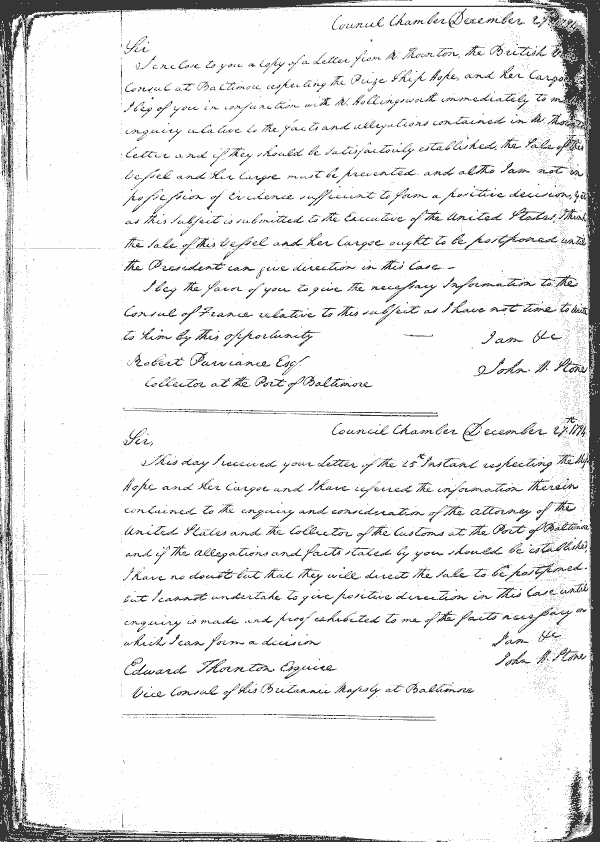 Council Chamber December 27th 1794
Sir
I enclose to you a Copy of a Letter from Mr Thornton, the British Vice
Consul at Baltimore respecting the Prize Ship Hope, and her Cargoe
I beg of you in conjunction with Mr Hollingsworth immediately to make
enquiry relative to the facts and allegations contained in Mr Thorntons
Letter and if they should be satisfactorily established, the Sale of this
Vessel and her Cargoe must be prevented and altho I am not in
possession of Evidence sufficient to form a positive decision, yet
as this Subject is submitted to the Executive of the United States, I think
the Sale of this Vessel and her Cargoe ought to be postponed until
the President can give direction in this Case –
I beg the favor of you to give the necessary Information to the
Consul of France relative to this subject as I have not time to write
to him by this opportunity — I am &c
Robert Purviance Esqr John H. Stone
Collector at the Port of Baltimore
Council Chamber December 27th 1794
Sir,
This day I received your Letter of the 25th Instant respecting the Ship
Hope and her Cargoe and I have referred the information therein
contained to the enquiry and consideration of the attorney of the
United States and the Collector of the Customs at the Port of Baltimore
and if the allegations and facts stated by you should be established
I have no doubt but that they will direct the Sale to be postponed.
but I cannot undertake to give positive direction in this Case until
enquiry is made and proof exhibited to me of the facts necessary on
which I can form a decision I am &c
Edward Thornton Esquire John H. Stone
Vice Consul of his Britannic Majesty at Baltimore